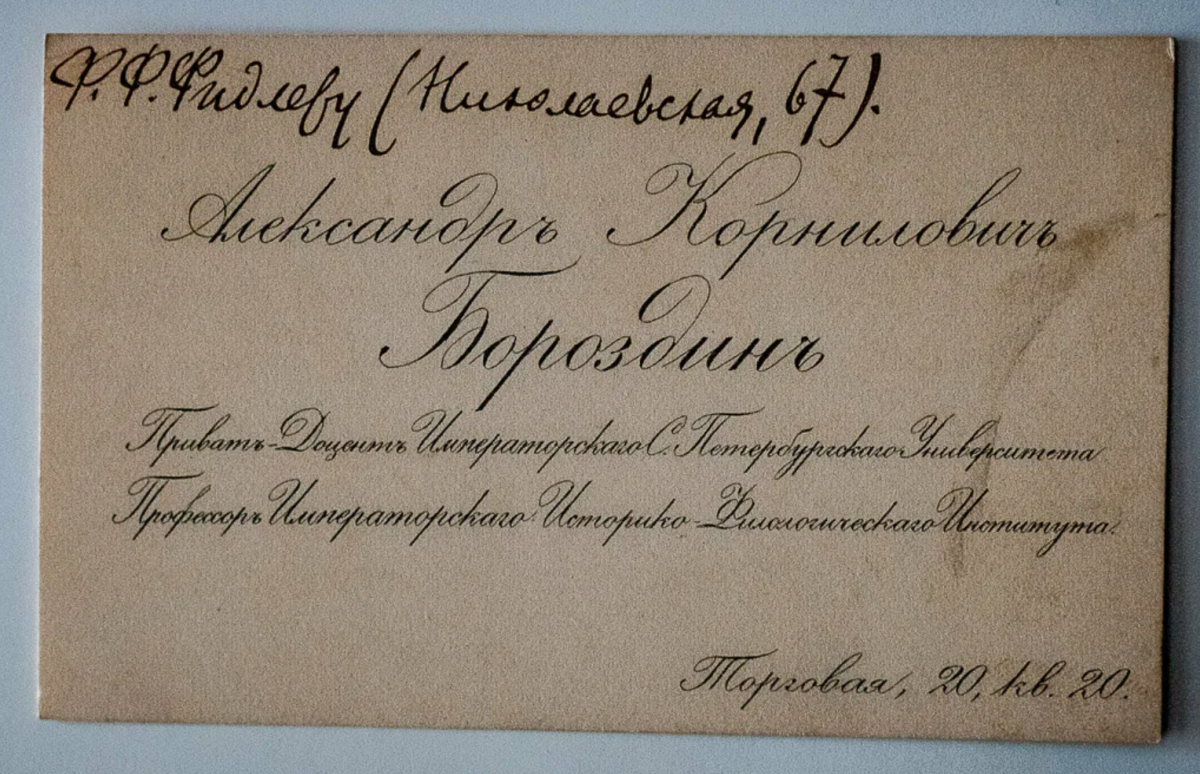 Ф. Ф. Фидлеру (Николаевская, 67).
Александръ Корниловичъ
Бороздинъ
Приватъ-Доцентъ Императорскаго С. Петербургскаго Университета
Профессоръ Императорскаго Историко-Филологическаго Института.
Торговая, 20, кв. 20.